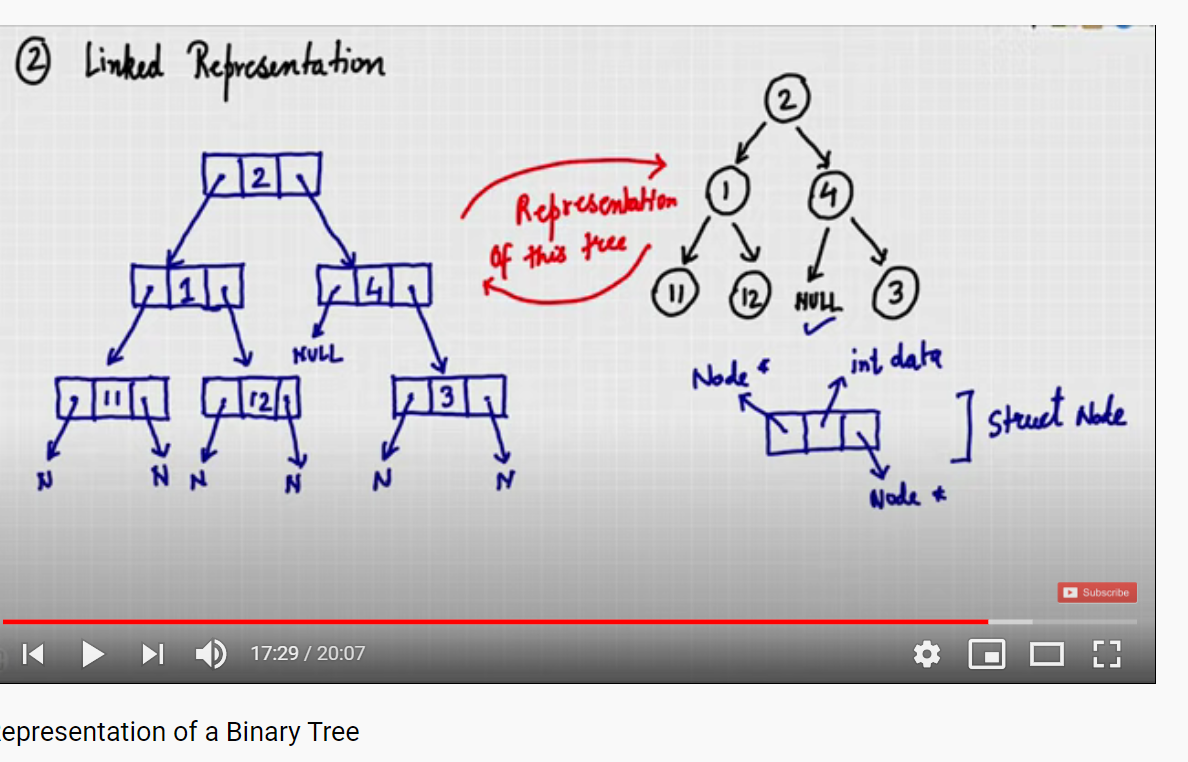 ② Linked Representation
2
1
4
NULL
11
12
3
N
N
N
N
N
N
Representation
of this tree
2
1
4
11
12
NULL
3
Node *
int data
Struct Node
Node *
Subscribe
17:29 / 20:07
epresentation of a Binary Tree